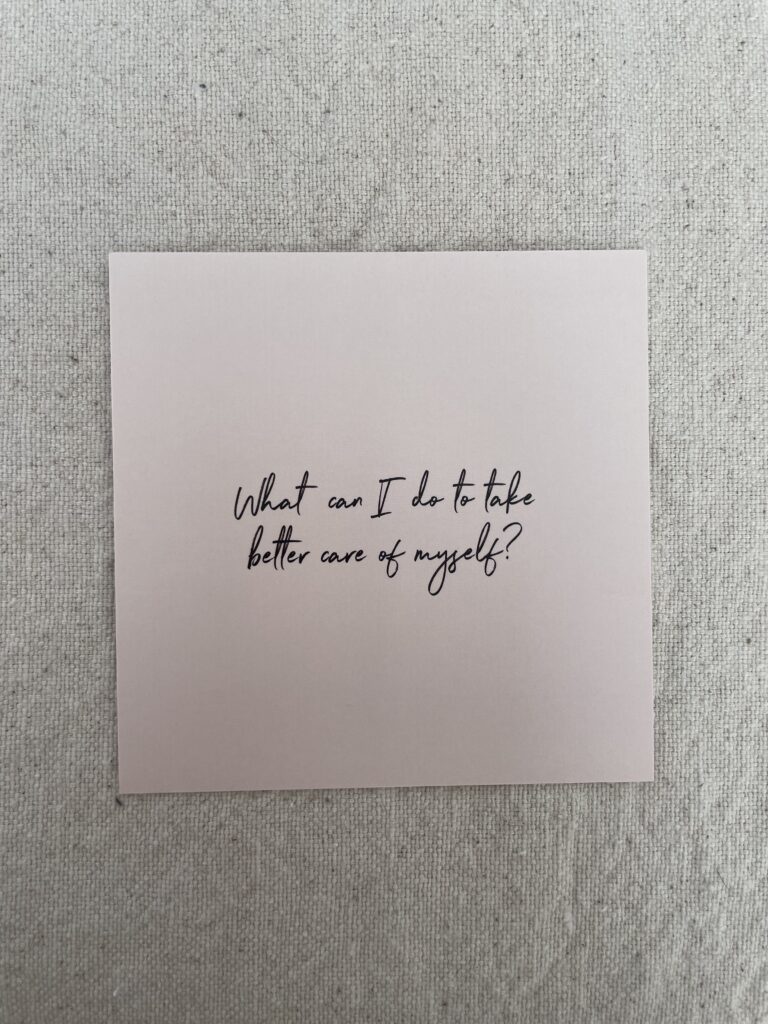 What can I do to take
better care of myself?